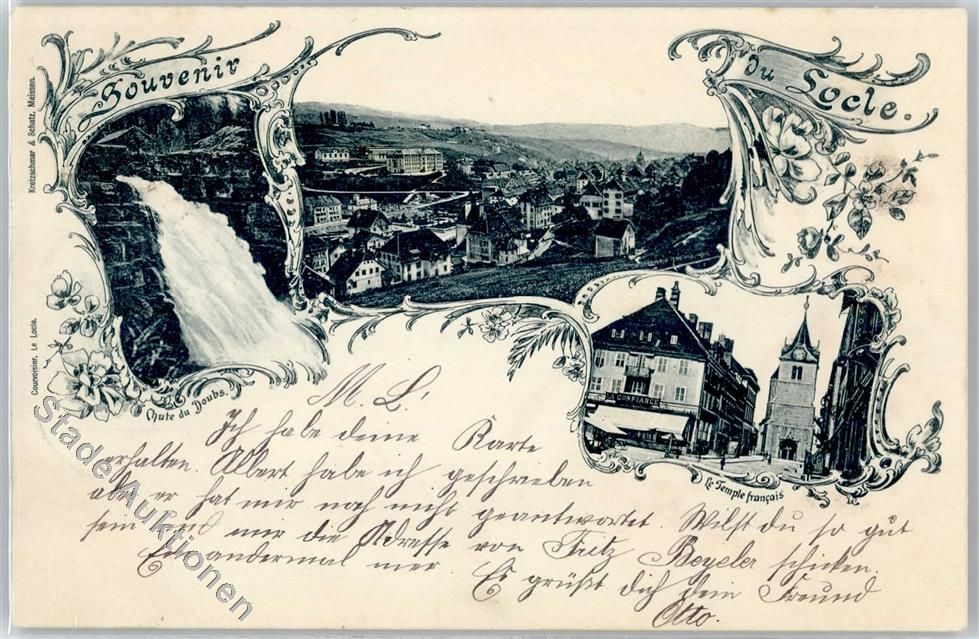 Souvenir
du Locle.
Kretzschmar & Schatz, Meissen.
Cournoisier, Le Locle.
Chute du Doubs.
A CONFIANCE
Le Temple français
M. L!
Ich habe deine Karte
erhalten. Albert habe ich geschrieben
aber er hat mir noch nicht geantwortet. Willst du so gut
sein und mir die Adresse von Fritz Beyeler schicken.
Ein andermal mer. Es grüßt dich dein Freund
Otto.
Stade Auktionen